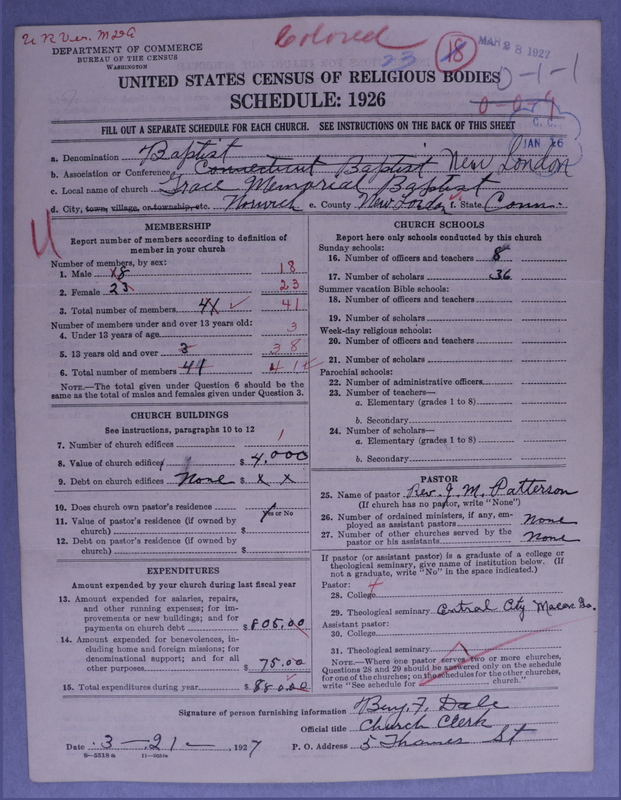 Colored
MAR 28 1927
DEPARTMENT OF COMMERCE
BUREAU OF THE CENSUS
WASHINGTON
23 18
0-1-1
UNITED STATES CENSUS OF RELIGIOUS BODIES
SCHEDULE: 1926
C. C.
JAN 16
FILL OUT A SEPARATE SCHEDULE FOR EACH CHURCH. SEE INSTRUCTIONS ON THE BACK OF THIS SHEET
a. Denomination Baptist
b. Association or Conference Connecticut Baptist New London
c. Local name of church Grace Memorial Baptist
d. City, town, village, or township, etc. Norwich e. County New London f. State Conn.
MEMBERSHIP
Report number of members according to definition of
member in your church
Number of members, by sex:
1. Male 18 18
2. Female 23 23
3. Total number of members 41 41
Number of members under and over 13 years old:
4. Under 13 years of age 3
5. 13 years old and over 3 38
6. Total number of members 41 41
NOTE.—The total given under Question 6 should be the
same as the total of males and females given under Question 3.
CHURCH BUILDINGS
See instructions, paragraphs 10 to 12
7. Number of church edifices 1
8. Value of church edifices $ 4,000
9. Debt on church edifices None $ x x
10. Does church own pastor's residence
Yes or No
11. Value of pastor's residence (if owned by
church) $
12. Debt on pastor's residence (if owned by
church) $
EXPENDITURES
Amount expended by your church during last fiscal year
13. Amount expended for salaries, repairs,
and other running expenses; for im-
provements or new buildings; and for
payments on church debt $ 805.00
14. Amount expended for benevolences, in-
cluding home and foreign missions; for
denominational support; and for all
other purposes 75.00
15. Total expenditures during year $ 880.00
CHURCH SCHOOLS
Report here only schools conducted by this church
Sunday schools:
16. Number of officers and teachers 8
17. Number of scholars 36
Summer vacation Bible schools:
18. Number of officers and teachers
19. Number of scholars
Week-day religious schools:
20. Number of officers and teachers
21. Number of scholars
Parochial schools:
22. Number of administrative officers
23. Number of teachers—
a. Elementary (grades 1 to 8)
b. Secondary
24. Number of scholars—
a. Elementary (grades 1 to 8)
b. Secondary
PASTOR
25. Name of pastor Rev. J. M. Patterson
(If church has no pastor, write "None")
26. Number of ordained ministers, if any, em-
ployed as assistant pastors None
27. Number of other churches served by the
pastor or his assistants None
If pastor (or assistant pastor) is a graduate of a college or
theological seminary, give name of institution below. (If
not a graduate, write "No" in the space indicated.)
Pastor:
28. College
29. Theological seminary Central City Macon Ga.
Assistant pastor:
30. College
31. Theological seminary
NOTE.—Where one pastor serves two or more churches,
Questions 28 and 29 should be answered only on the schedule
for one of the churches; on the schedules for the other churches,
write "See schedule for church."
Signature of person furnishing information Benj. F. Dale
Official title Church Clerk
Date 3-21-, 1927 P. O. Address 5 Thames St
8-5518 a